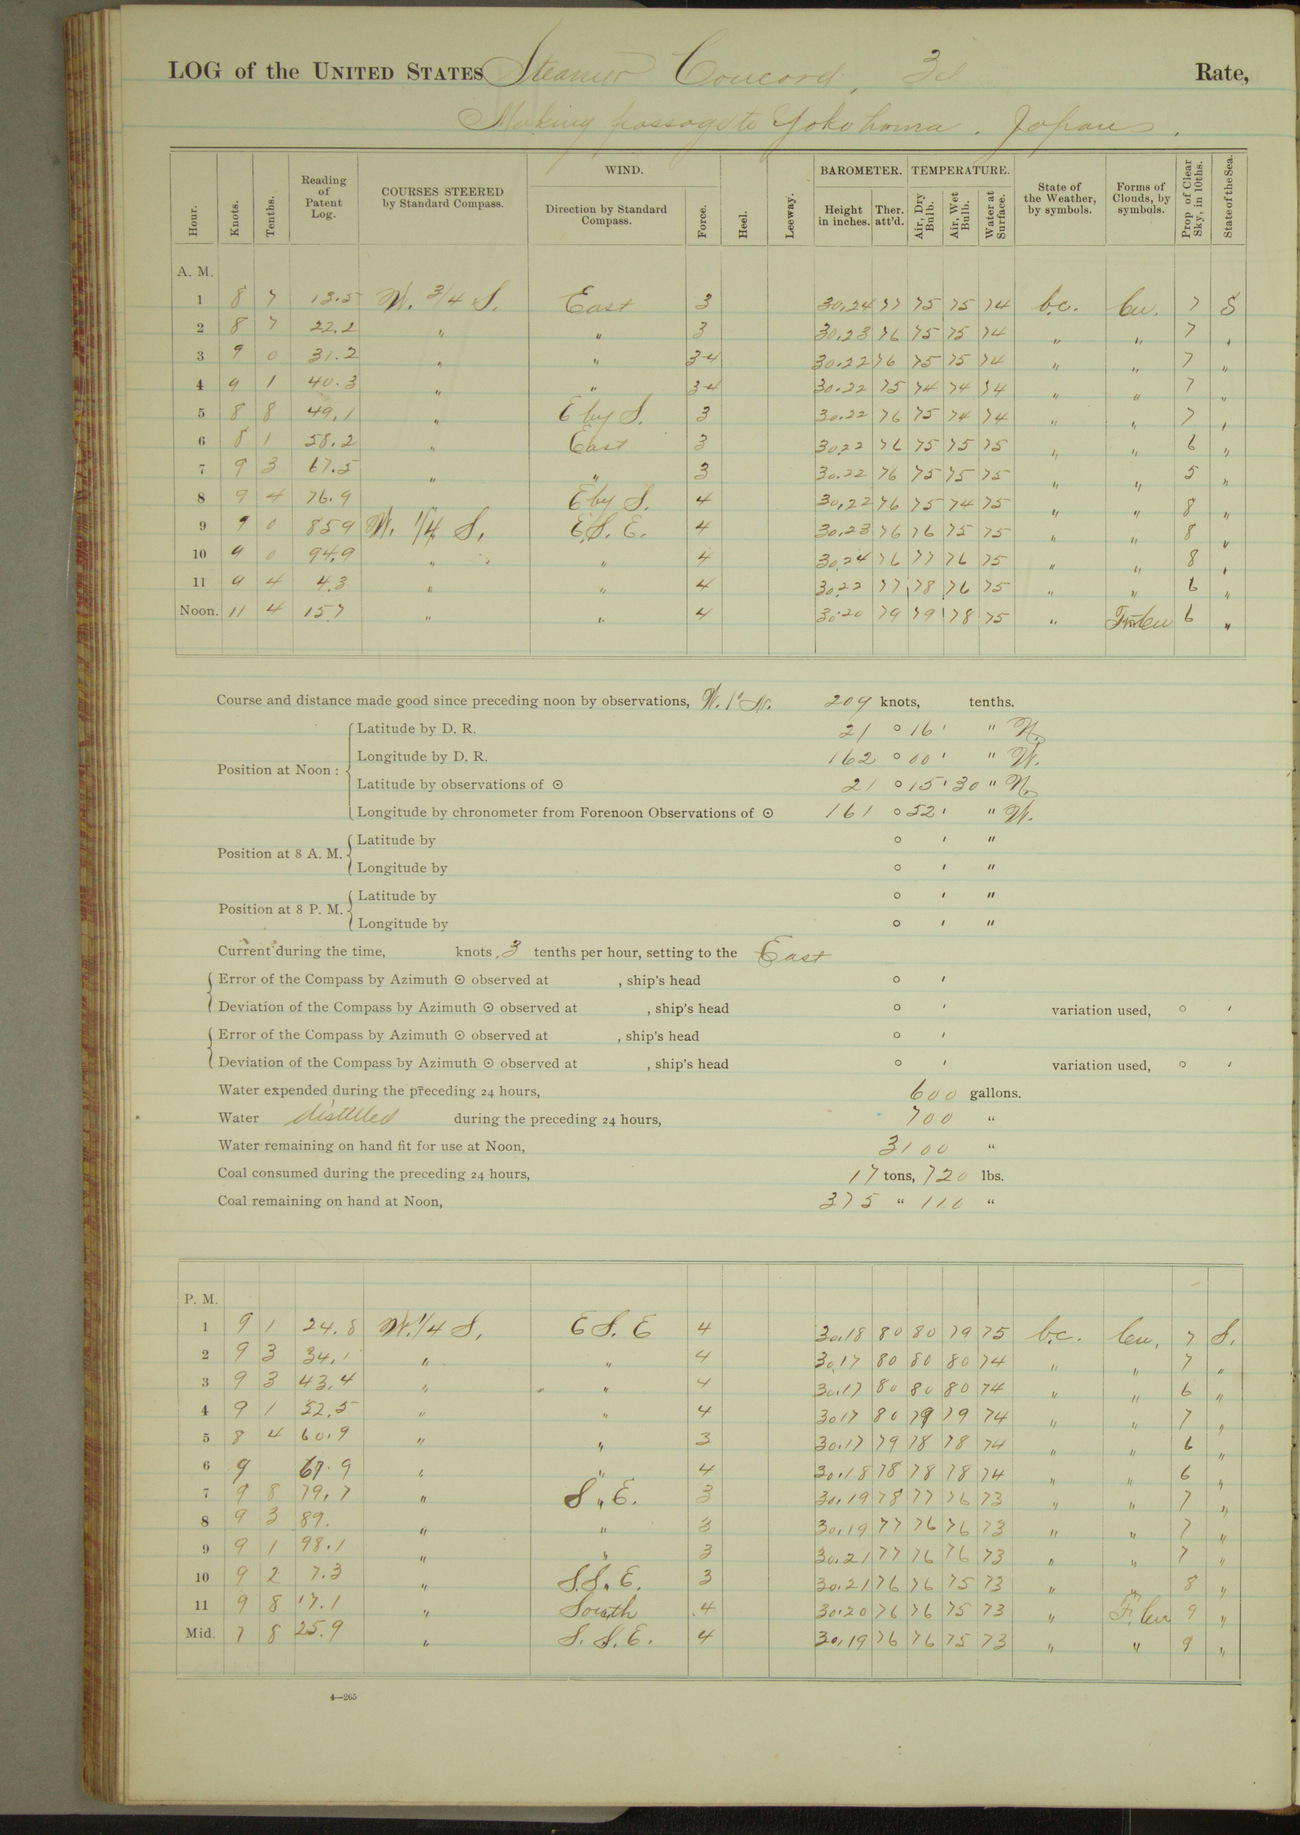 LOG of the UNITED STATES Steamer Concord, 3d Rate,
Making passage to Yokohama. Japan.
Hour. Knots. Tenths. Reading of Patent Log. COURSES STEERED by Standard Compass. WIND. Direction by Standard Compass. Force. Heel. Leeway. BAROMETER. Height in inches. Ther. att'd. TEMPERATURE. Air, Dry Bulb. Air, Wet Bulb. Water at Surface. State of the Weather, by symbols. Forms of Clouds, by symbols. Prop of Clear Sky, in 10ths. State of the Sea.
A. M.
1 8 7 13.5 W. 3/4 S. East 3 30.24 77 75 75 74 bc. Cu. 7 S
2 8 7 22.2 " " 3 30.23 76 75 75 74 " " 7 "
3 9 0 31.2 " " 3-4 30.22 76 75 75 74 " " 7 "
4 9 1 40.3 " " 3-4 30.22 75 74 74 74 " " 7 "
5 8 8 49.1 " E by S. 3 30.22 76 75 74 74 " " 7 "
6 8 1 58.2 " East 3 30.22 76 75 75 75 " " 6 "
7 9 3 67.5 " " 3 30.22 76 75 75 75 " " 5 "
8 9 4 76.9 E by S. 4 30.22 76 75 74 75 " " 8 "
9 9 0 859 W. 1/4 S. E.S.E. 4 30.23 76 76 75 75 " " 8 "
10 9 0 94.9 " " 4 30.24 76 77 76 75 " " 8 "
11 9 4 4.3 " " 4 30.22 77 78 76 75 " " 6 "
Noon. 11 4 157 " " 4 30.20 79 79 78 75 " Cu 6 "
Course and distance made good since preceding noon by observations, W. 1° N. 209 knots, tenths.
Position at Noon:
Latitude by D. R. 21 ° 16 ' " N.
Longitude by D. R. 162 ° 00 ' " W.
Latitude by observations of ☉ 21 ° 15 ' 30 " N.
Longitude by chronometer from Forenoon Observations of ☉ 161 ° 52 ' " W.
Position at 8 A. M.
Latitude by ° ' "
Longitude by ° ' "
Position at 8 P. M.
Latitude by ° ' "
Longitude by ° ' "
Current during the time, knots .3 tenths per hour, setting to the East
Error of the Compass by Azimuth ☉ observed at , ship's head ° '
Deviation of the Compass by Azimuth ☉ observed at , ship's head ° ' variation used, ° '
Error of the Compass by Azimuth ☉ observed at , ship's head ° '
Deviation of the Compass by Azimuth ☉ observed at , ship's head ° ' variation used, ° '
Water expended during the preceding 24 hours, 600 gallons.
Water distilled during the preceding 24 hours, 700 "
Water remaining on hand fit for use at Noon, 3100 "
Coal consumed during the preceding 24 hours, 17 tons, 720 lbs.
Coal remaining on hand at Noon, 375 " 110 "
P. M.
1 9 1 24.8 W. 1/4 S. E S. E 4 30.18 80 80 79 75 bc. Cu. 7 S.
2 9 3 34.1 " " 4 30.17 80 80 80 74 " " 7 "
3 9 3 43.4 " " 4 30.17 80 80 80 74 " " 6 "
4 9 1 52.5 " " 4 30.17 80 79 79 74 " " 7 "
5 8 4 60.9 " " 3 30.17 79 78 78 74 " " 6 "
6 9 67.9 " " 4 30.18 78 78 78 74 " " 6 "
7 9 8 79.7 " S. E. 3 30.19 78 77 76 73 " " 7 "
8 9 3 89. " " 3 30.19 77 76 76 73 " " 7 "
9 9 1 98.1 " " 3 30.21 77 76 76 73 " " 7 "
10 9 2 7.3 " S.S.E. 3 30.21 76 76 75 73 " " 8 "
11 9 8 17.1 " South 4 30.20 76 76 75 73 " Cu 9 "
Mid. 7 8 25.9 " S. S. E. 4 30.19 76 76 75 73 " " 9 "
4—265